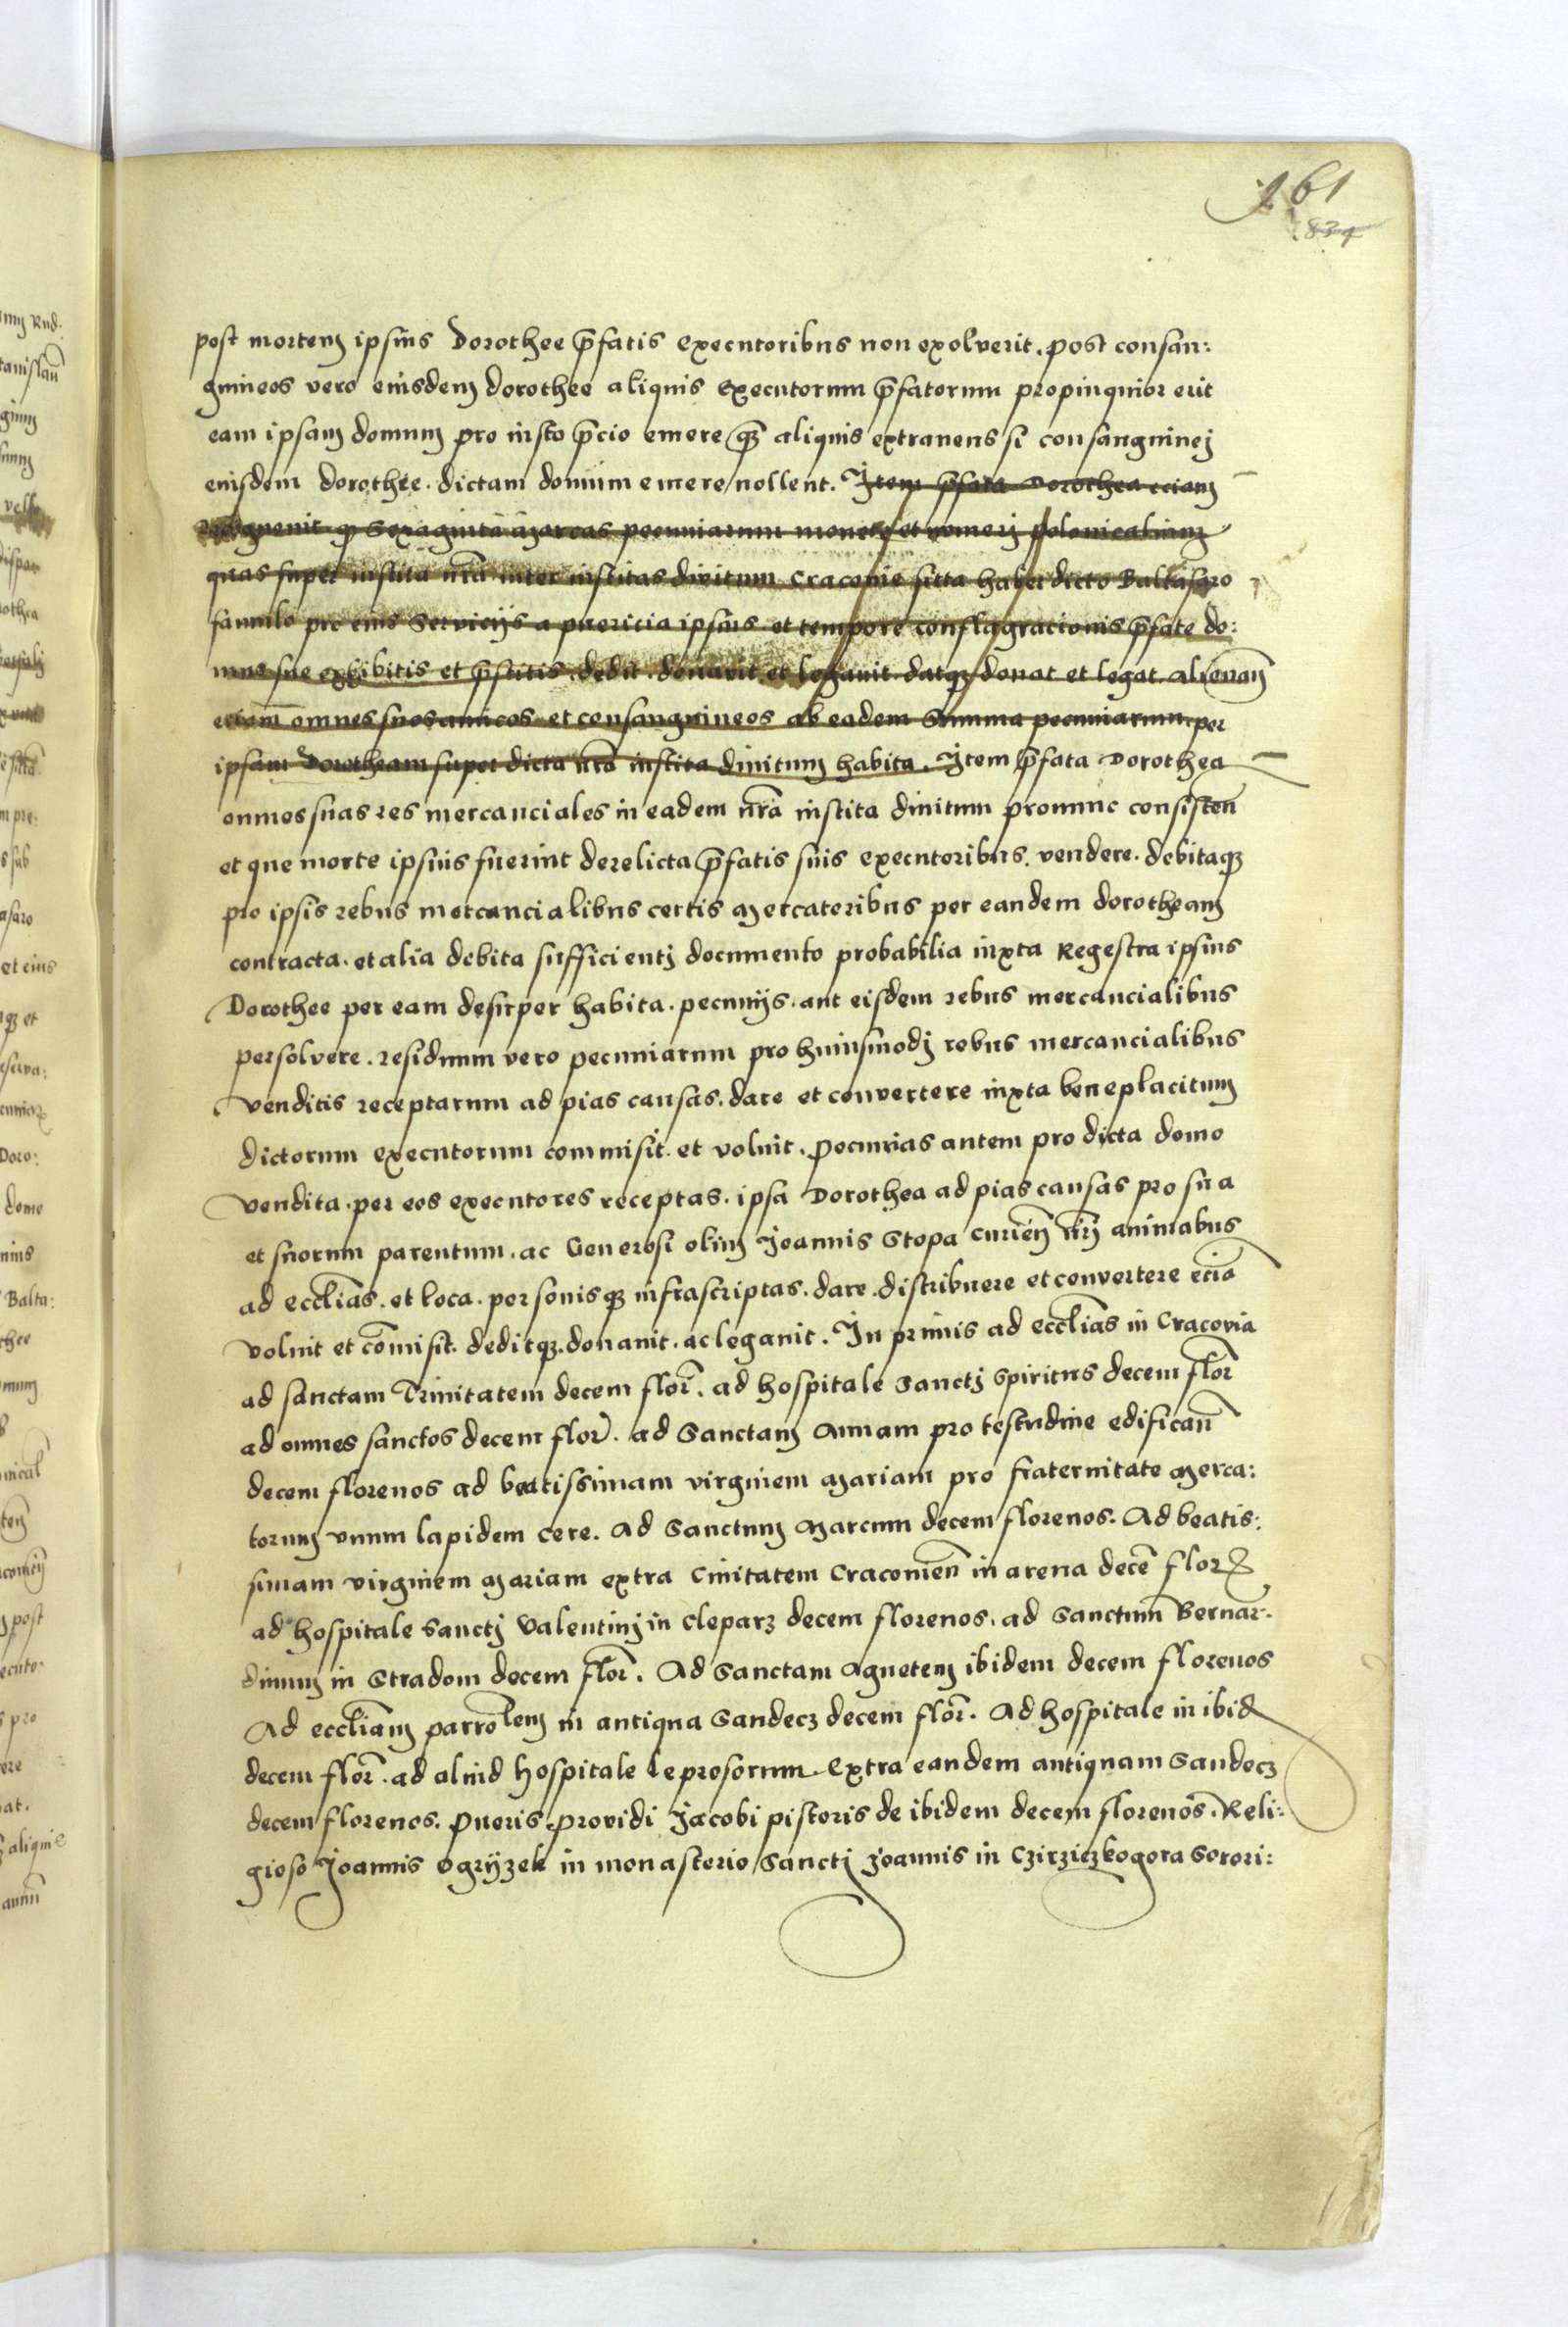 161
834
post mortem ipsius Dorothee p̄fatis executoribus non exolverit. post consan:
guineos vero eiusdem dorothee aliquis executorum p̄fatorum propinquior erit
eam ipsam domum pro iusto p̄cio emere q̄ȝ aliquis extraneus si consanguinej
eiusdem dorothee. dictam domum emere nollent. Item p̄fata Dorothea eciam
q Sexaginta Marcas pecuniarum monete et numerj polonicalium
quas super instita nr̄a inter institas divitum Cracovie sitta habet dicto Baltasaro
famulo pro eius Serviciis a puericia ipsius et tempore conflagracionis p̄fate do:
mus sue exhibitis et p̄stitis. dedit. donavit et legavit. datqȝ donat et legat.
eciam omnes suos amicos et consanguineos ab eadem Summa pecuniarum per
ipsam Dorotheam super dicta nr̄a instita divitum habita. Item p̄fata Dorothea
omnes suas res mercanciales in eadem nr̄a instita divitum pronunc consisten̄
et que morte ipsius fuerint derelicta p̄fatis suis executoribus. vendere. debitaqȝ
pro ipsis rebus mercancialibus certis Mercatoribus per eandem dorotheam
contracta. et alia debita sufficientj documento probabilia iuxta Regestra ipsius
Dorothee per eam desuper habita. pecuniis. aut eisdem rebus mercancialibus
persolvere. residuum vero pecuniarum pro huiusmodj rebus mercancialibus
venditis receptarum ad pias causas. dare et convertere iuxta beneplacitum
dictorum executorum commisit. et voluit. Pecunias autem pro dicta domo
vendita. per eos executores receptas. ipsa Dorothea ad pias causas pro sua
et suorum parentum. ac Generosi olim Joannis Stopa Curien̄ nr̄j animabus
ad eccl̄ias. et loca. personisqȝ infrascriptas. dare. distribuere et convertere eciā
voluit et com̄isit. deditqȝ. donauit. ac legauit. In primis ad eccl̄ias in Cracovia
ad sanctam Trinitatem decem flor̄. ad hospitale Sanctj Spiritus decem flor̄
ad omnes sanctos decem flor̄. ad Sanctam Annam pro testudine edifican̄
decem florenos ad beatissimam virginem Mariam pro fraternitate Merca:
torum unum lapidem cere. Ad Sanctum Marcum decem florenos. Ad beatis:
simam virginem Mariam extra Civitatem Cracovien̄ in arena decē flor
ad hospitale Sanctj Valentinj in Cleparz decem florenos. ad Sanctum Bernar-
dinum in Stradom decem flor̄. Ad Sanctam Agnetem ibidem decem florenos
Ad eccl̄iam parro^lem in antiqua Sandecz decem flor̄. Ad hospitale in ibid
decem flor̄. ad aliud hospitale leprosorum. extra eandem antiquam Sandecz
decem florenos. Pueris. providi Jacobi pistoris de ibidem decem florenos. Reli:
gioso Joannis Ogryzek in monasterio Sanctj Joannis in Czirziczkogora Sorori: